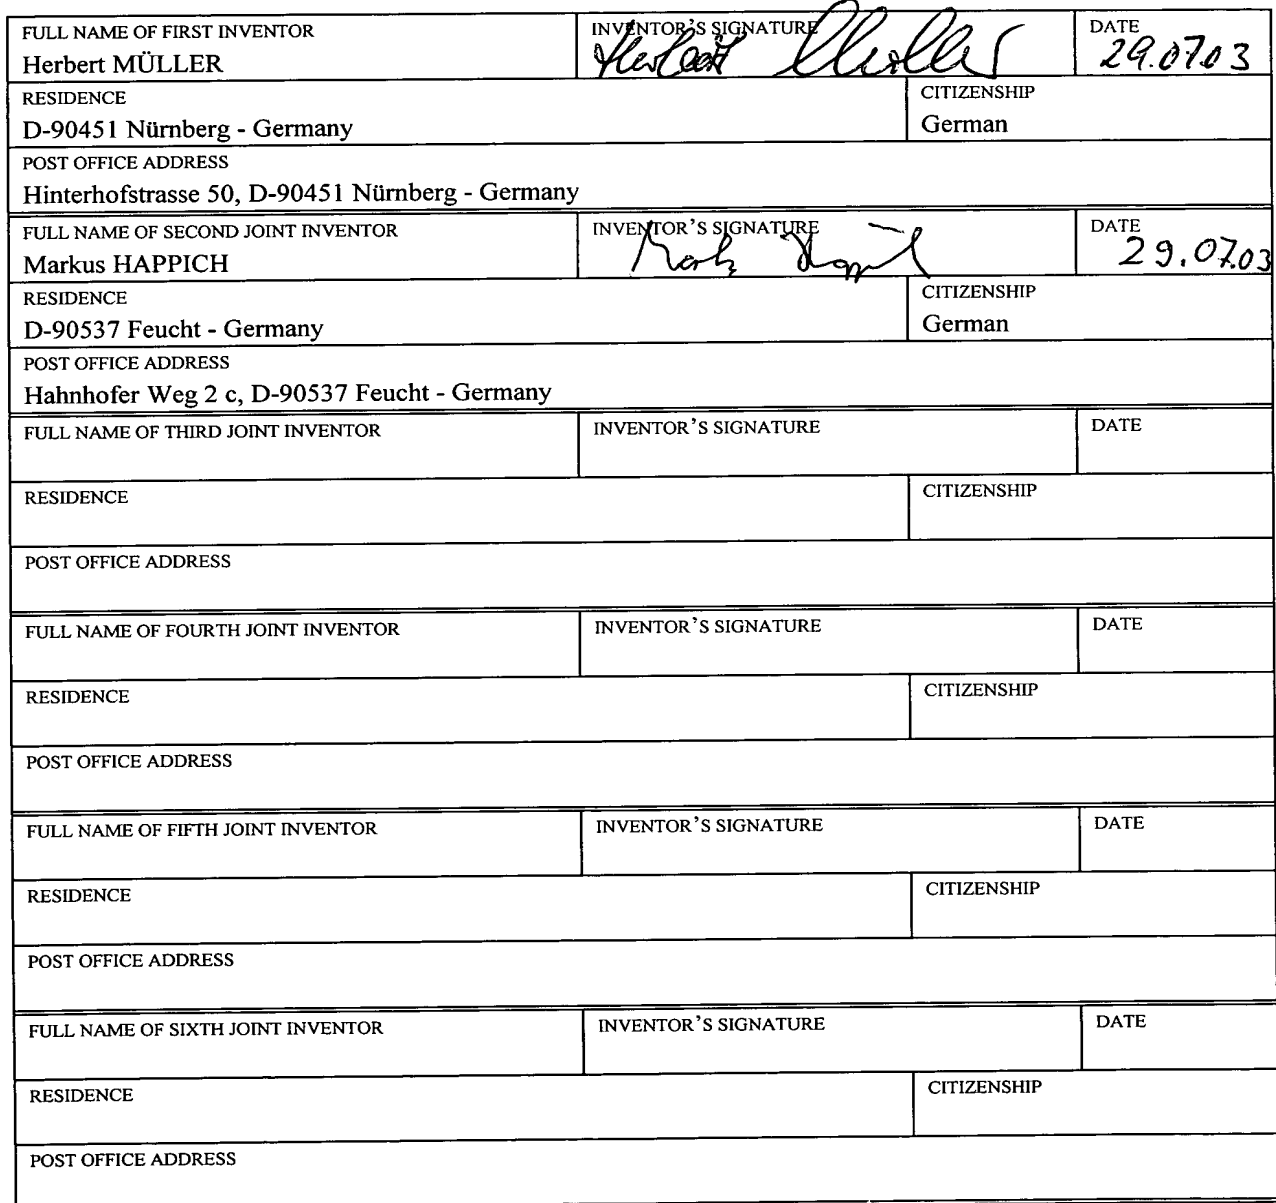 FULL NAME OF FIRST INVENTOR INVENTOR'S SIGNATURE DATE
Herbert MÜLLER Herbert Müller 29.07.03
RESIDENCE CITIZENSHIP
D-90451 Nürnberg - Germany German
POST OFFICE ADDRESS
Hinterhofstrasse 50, D-90451 Nürnberg - Germany
FULL NAME OF SECOND JOINT INVENTOR INVENTOR'S SIGNATURE DATE
Markus HAPPICH 29.07.03
RESIDENCE CITIZENSHIP
D-90537 Feucht - Germany German
POST OFFICE ADDRESS
Hahnhofer Weg 2 c, D-90537 Feucht - Germany
FULL NAME OF THIRD JOINT INVENTOR INVENTOR'S SIGNATURE DATE
RESIDENCE CITIZENSHIP
POST OFFICE ADDRESS
FULL NAME OF FOURTH JOINT INVENTOR INVENTOR'S SIGNATURE DATE
RESIDENCE CITIZENSHIP
POST OFFICE ADDRESS
FULL NAME OF FIFTH JOINT INVENTOR INVENTOR'S SIGNATURE DATE
RESIDENCE CITIZENSHIP
POST OFFICE ADDRESS
FULL NAME OF SIXTH JOINT INVENTOR INVENTOR'S SIGNATURE DATE
RESIDENCE CITIZENSHIP
POST OFFICE ADDRESS